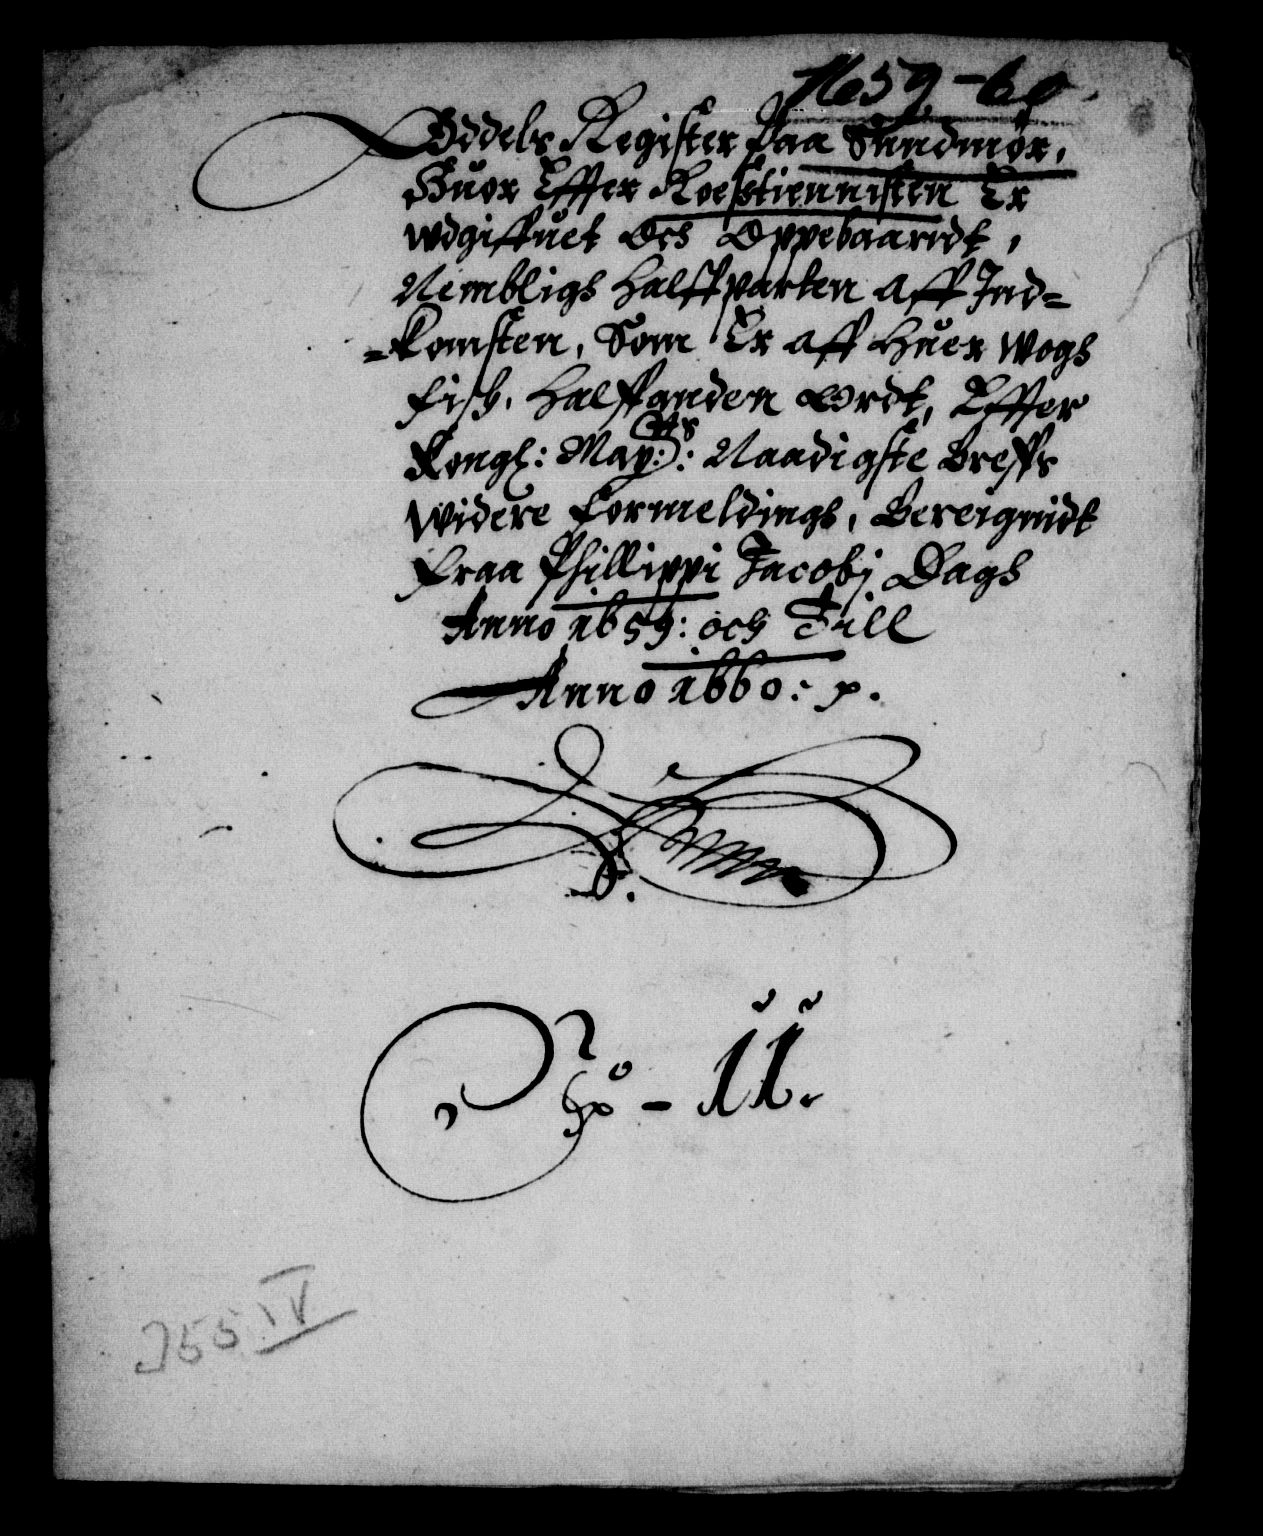 1659-60.
Oddels Register paa Sundmør,
Huor Effter Roesstiennisten Er
wdgiffuet Och Oppebaaridt,
Nembligh Halffparten Aff Ind=
=komsten, Som Er aff Huer wogh
fish, Halffanden Ordt, Effter
Kongl: May:tts: Naadigste Breffs
Widere formeldingh, Bereignidt
fraa Phillippi Jacobj Dagh
Anno 1659: och Till
Anno 1660:
No - 11.
355 IV